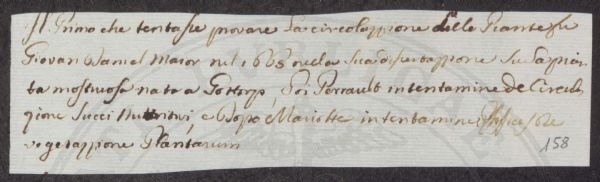 Il Primo che tentasse provare La circolazzione delle Piante fu
Giovan Daniel Maior nel 1665 nella sua dissertazzione su La pian
ta mostruosa nata a Gottorp, Poi Perrault in tentamine de Circula
zione Succi Nutritivi, e Dopo Mariotte in tentamine Physices de
vegetazzione Plantarum
158